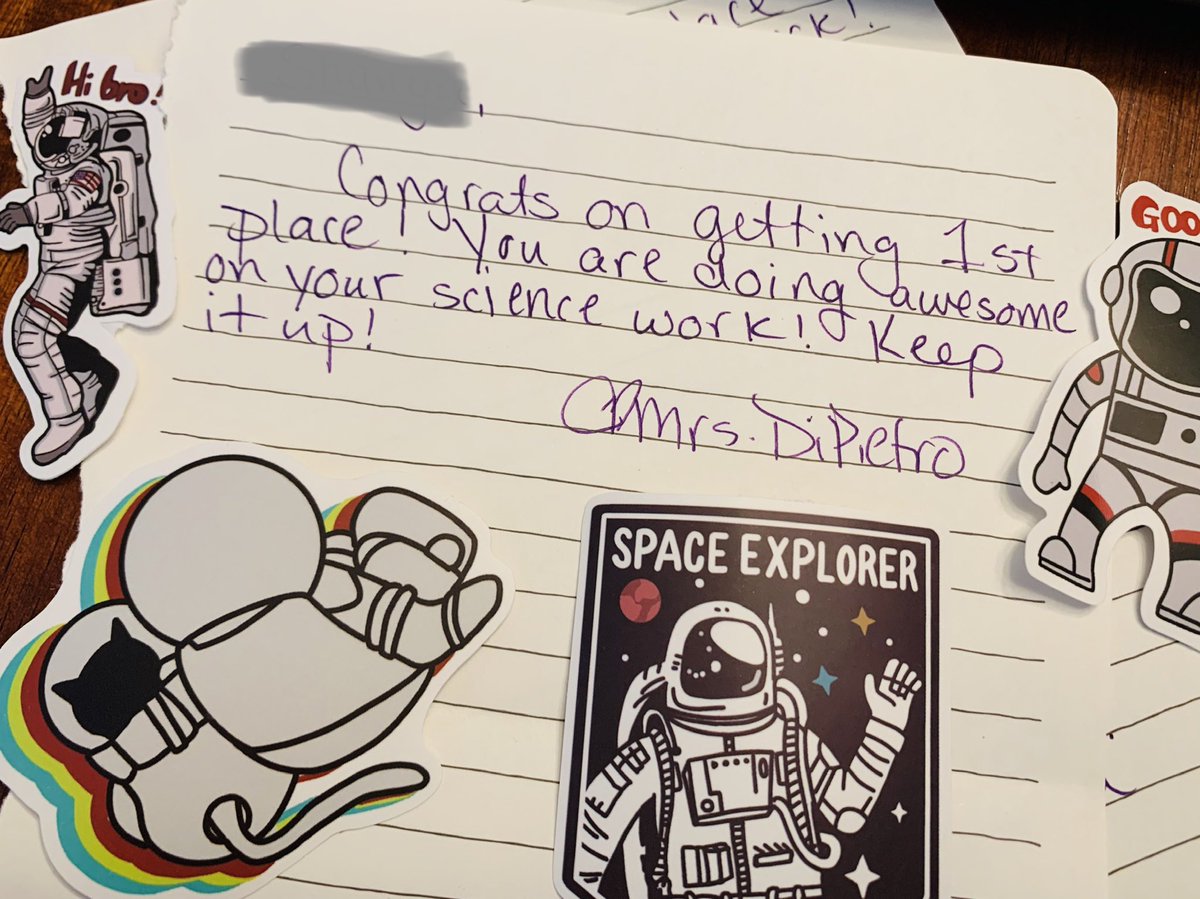 Hi bro!
Congrats on getting 1st
place! You are doing awesome
on your science work! Keep
it up!
Mrs. DiPietro
GOO
SPACE EXPLORER